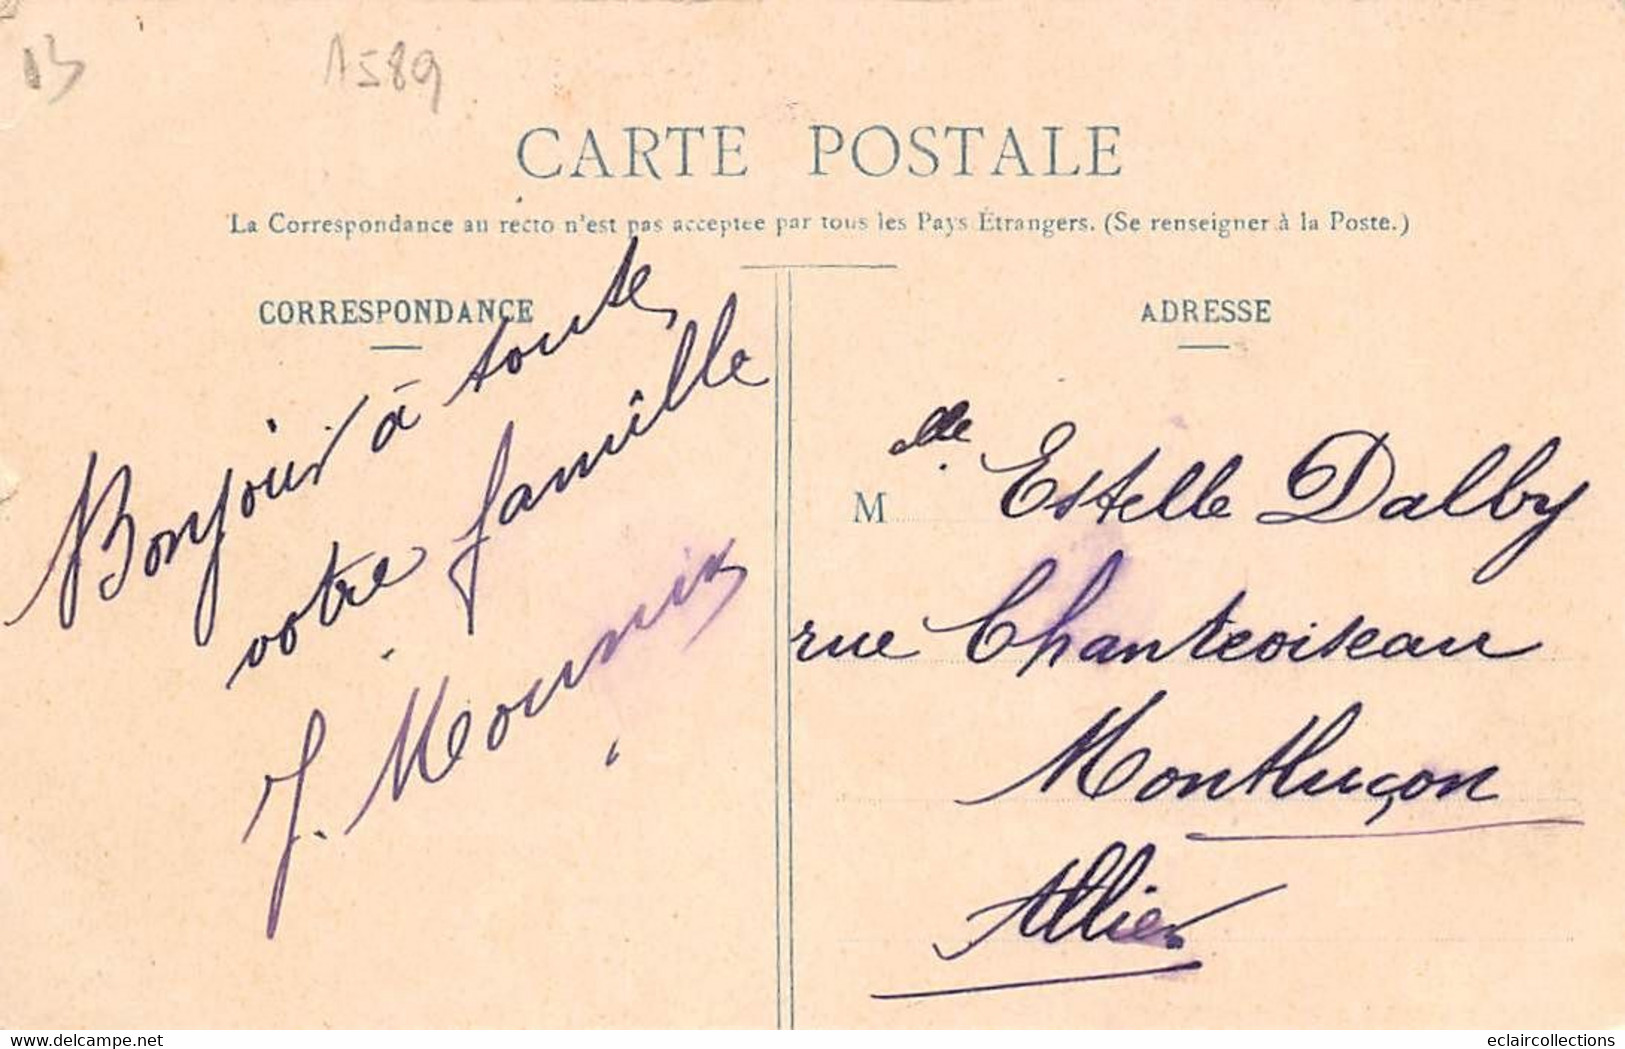 13
1589
CARTE POSTALE
La Correspondance au recto n'est pas acceptée par tous les Pays Étrangers. (Se renseigner à la Poste.)
CORRESPONDANCE
Bonjour à toute
votre famille
J. Mounix
ADRESSE
M elle Estelle Dalby
rue Chanteoiseau
Montluçon
Allier
delcampe.net
eclaircollections